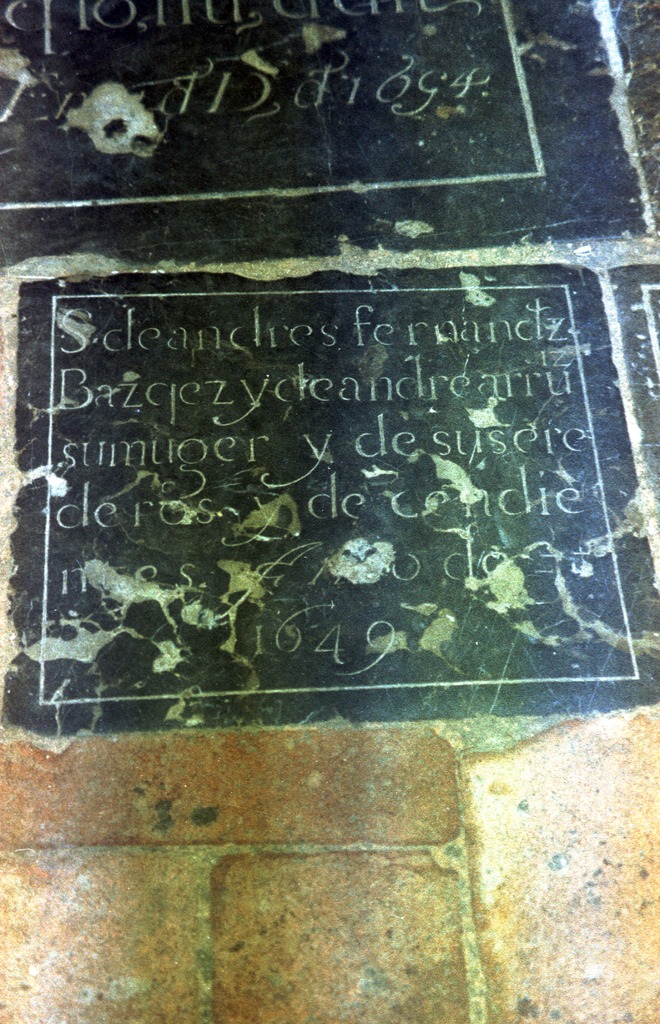 d 1694
S. de andres fernandz
Bazqez y de andrea rru
iz
su muger y de sus ere
deros y de cendie
ntes Año de
1649